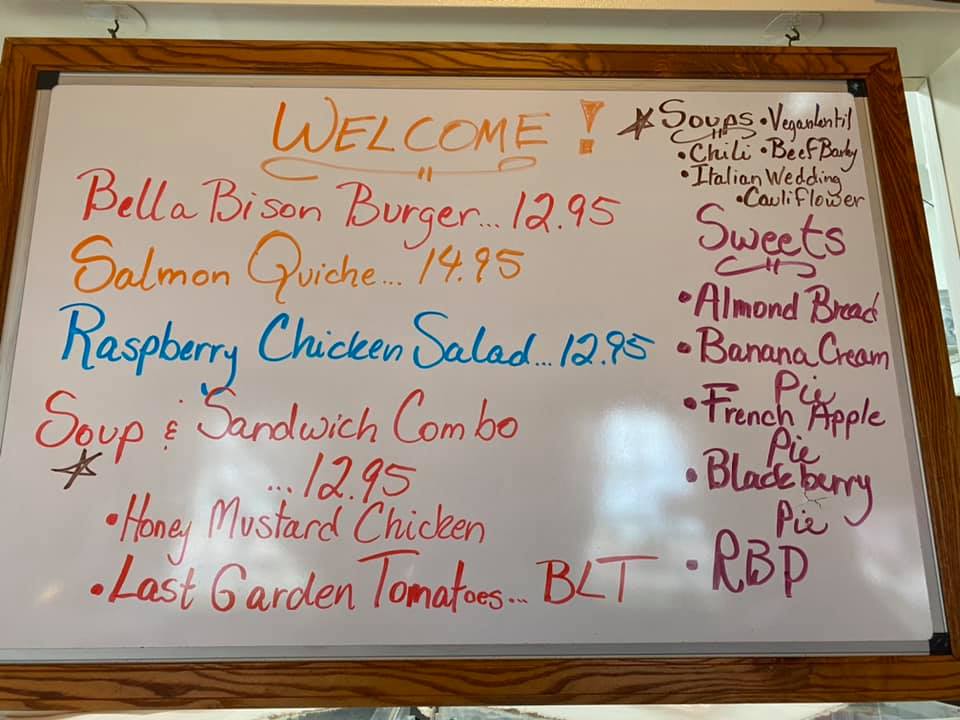 WELCOME!
Bella Bison Burger... 12.95
Salmon Quiche... 14.95
Raspberry Chicken Salad... 12.95
Soup & Sandwich Combo
... 12.95
• Honey Mustard Chicken
• Last Garden Tomatoes... BLT
Soups • Vegan lentil
• Chili • Beef Barley
• Italian Wedding
• Cauliflower
Sweets
• Almond Bread
• Banana Cream
Pie
• French Apple
Pie
• Blackberry
Pie
• RBP